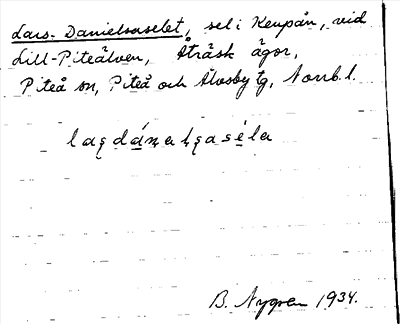 Lars-Danielsaselet, sel i Keupån, vid
Lill-Piteälven, Åträsk ägor,
Piteå sn, Piteå och Älvsby tg, Norrb. l.
B. Nygren 1934.